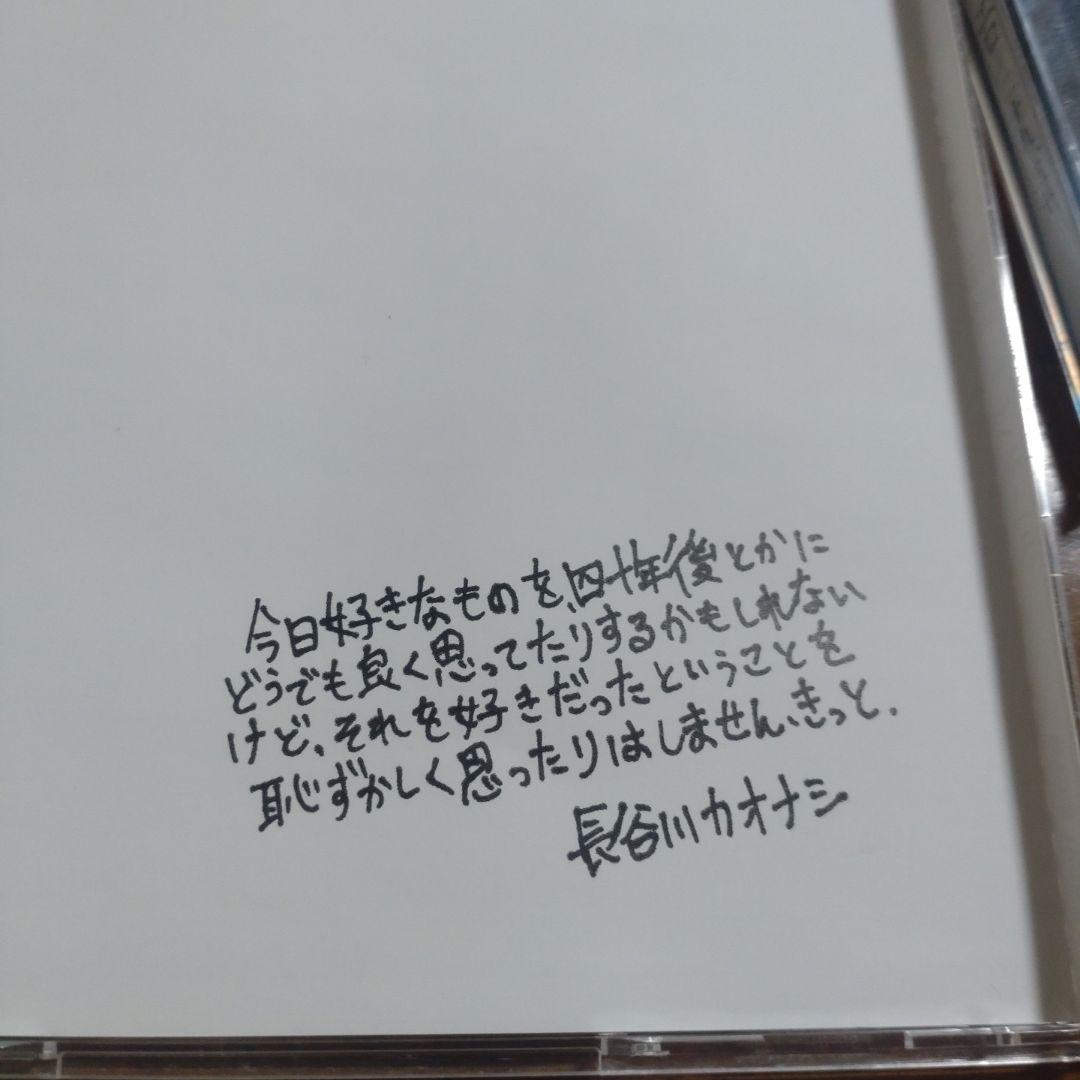 今日好きなものを、四十年後とかに
どうでも良く思ってたりするかもしれない
けど、それを好きだったということを
恥ずかしく思ったりはしません、きっと。
長谷川カオナシ